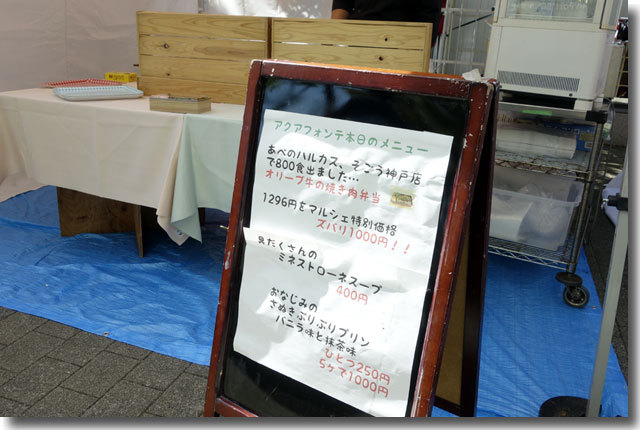 アクアフォンテ本日のメニュー
あべのハルカス、そごう神戸店
で800食出ました…
オリーブ牛の焼き肉弁当
1296円をマルシェ特別価格
ズバリ1000円！！
具だくさんの
ミネストローネスープ
400円
おなじみの
さぬきぷりぷりプリン
バニラ味と抹茶味
ひとつ250円
5ケで1000円